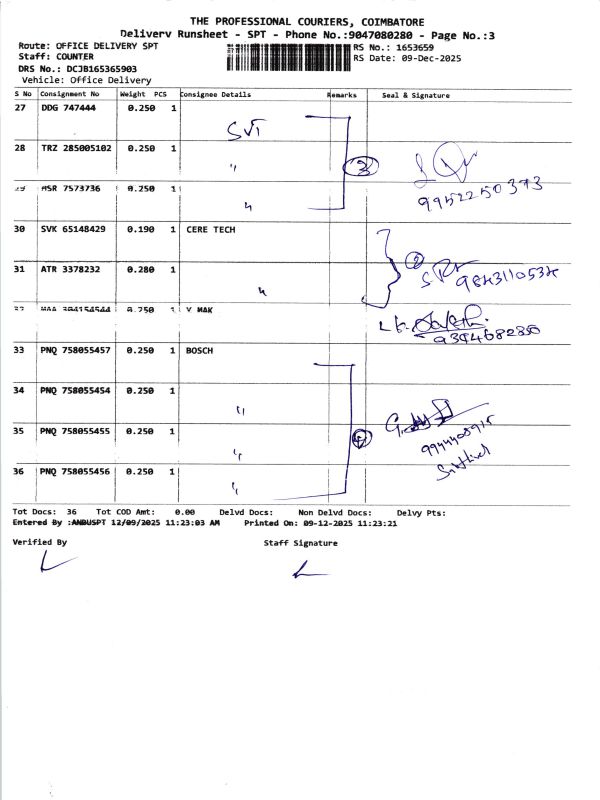 THE PROFESSIONAL COURIERS, COIMBATORE
Delivery Runsheet - SPT - Phone No.:9047080280 - Page No.:3
Route: OFFICE DELIVERY SPT
Staff: COUNTER
DRS No.: DCJB165365903
Vehicle: Office Delivery
RS No.: 1653659
RS Date: 09-Dec-2025
S No Consignment No Weight PCS Consignee Details Remarks Seal & Signature
27 DDG 747444 0.250 1
SVT
28 TRZ 285005102 0.250 1
"
3
9952250373
29 HSR 7573736 0.250 1
"
30 SVK 65148429 0.190 1 CERE TECH
2
31 ATR 3378232 0.280 1
"
9843110534
32 MAA 304154544 0.250 1 V MAK
9394682850
33 PNQ 758055457 0.250 1 BOSCH
34 PNQ 758055454 0.250 1
"
35 PNQ 758055455 0.250 1
"
4
9944408915
36 PNQ 758055456 0.250 1
"
Tot Docs: 36 Tot COD Amt: 0.00 Delvd Docs: Non Delvd Docs: Delvy Pts:
Entered By :ANBUSPT 12/09/2025 11:23:03 AM Printed On: 09-12-2025 11:23:21
Verified By
Staff Signature